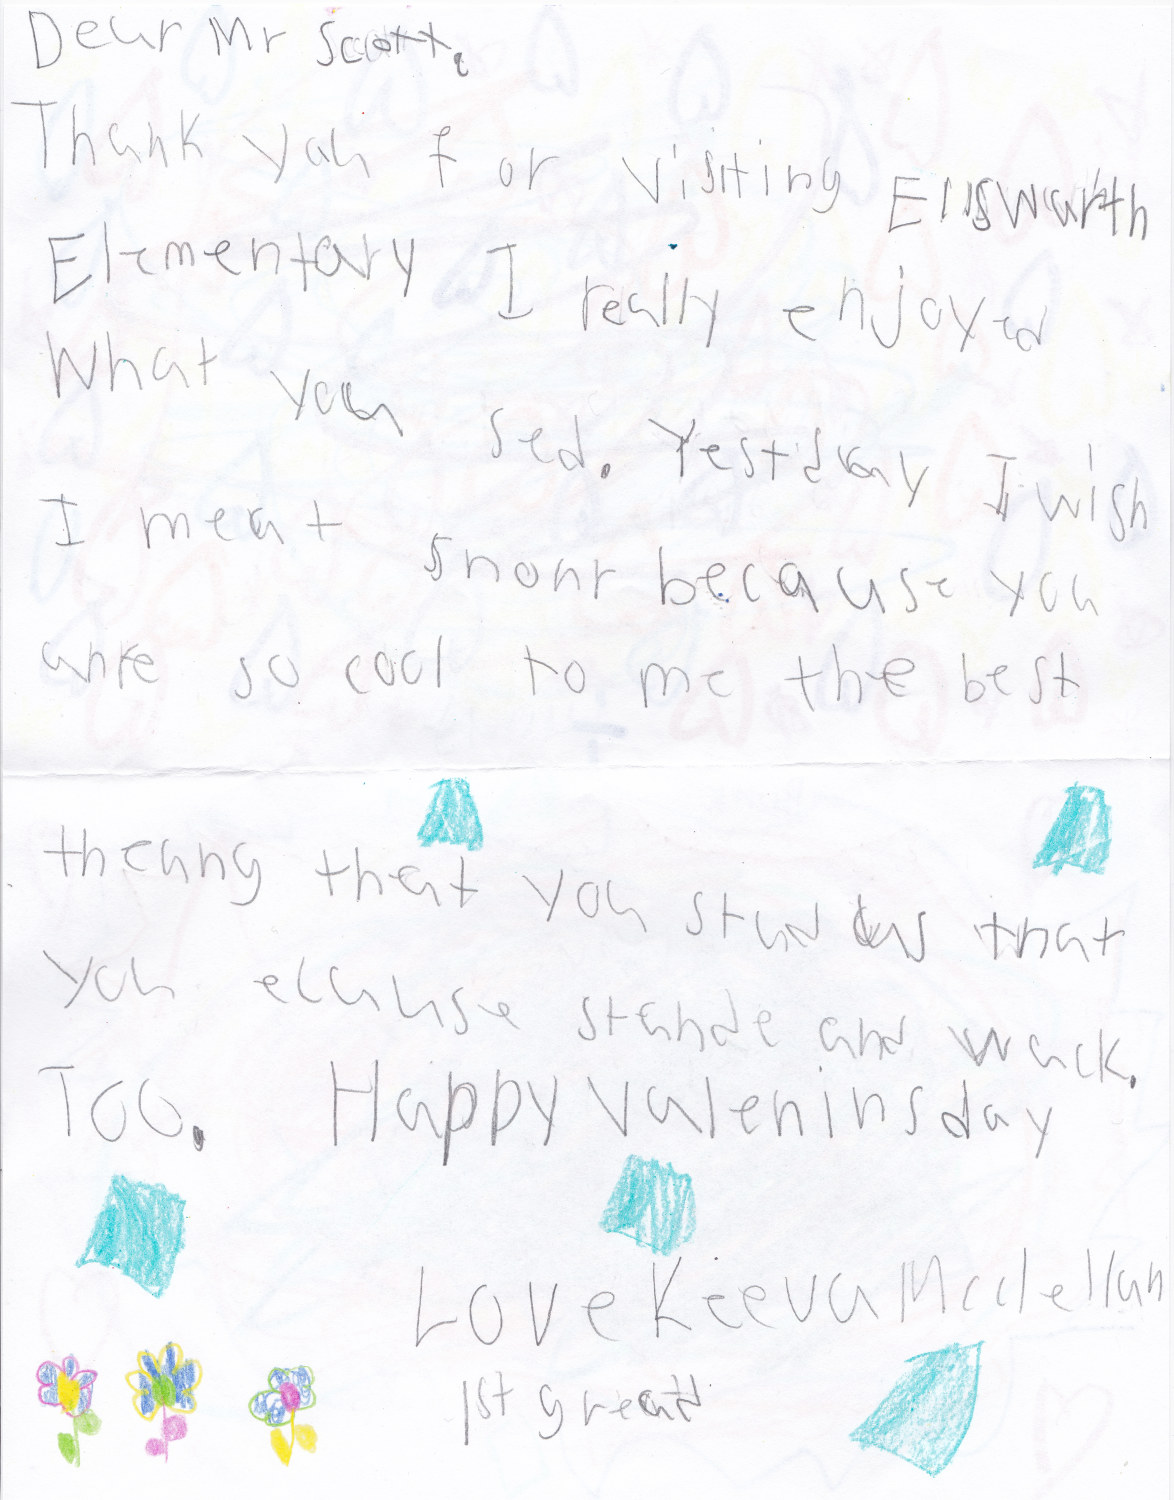 Dear Mr Scott,
Thank you for visiting Ellswarth
Elementary I really enjoyed
What you sed. Yestrday I wish
I meat snonr because you
anre so cool to me the best
theang that you stand us that
you ecause stande and wack.
Too. Happy Valeninsday
Love Keeva Mcclellan
1st greatd